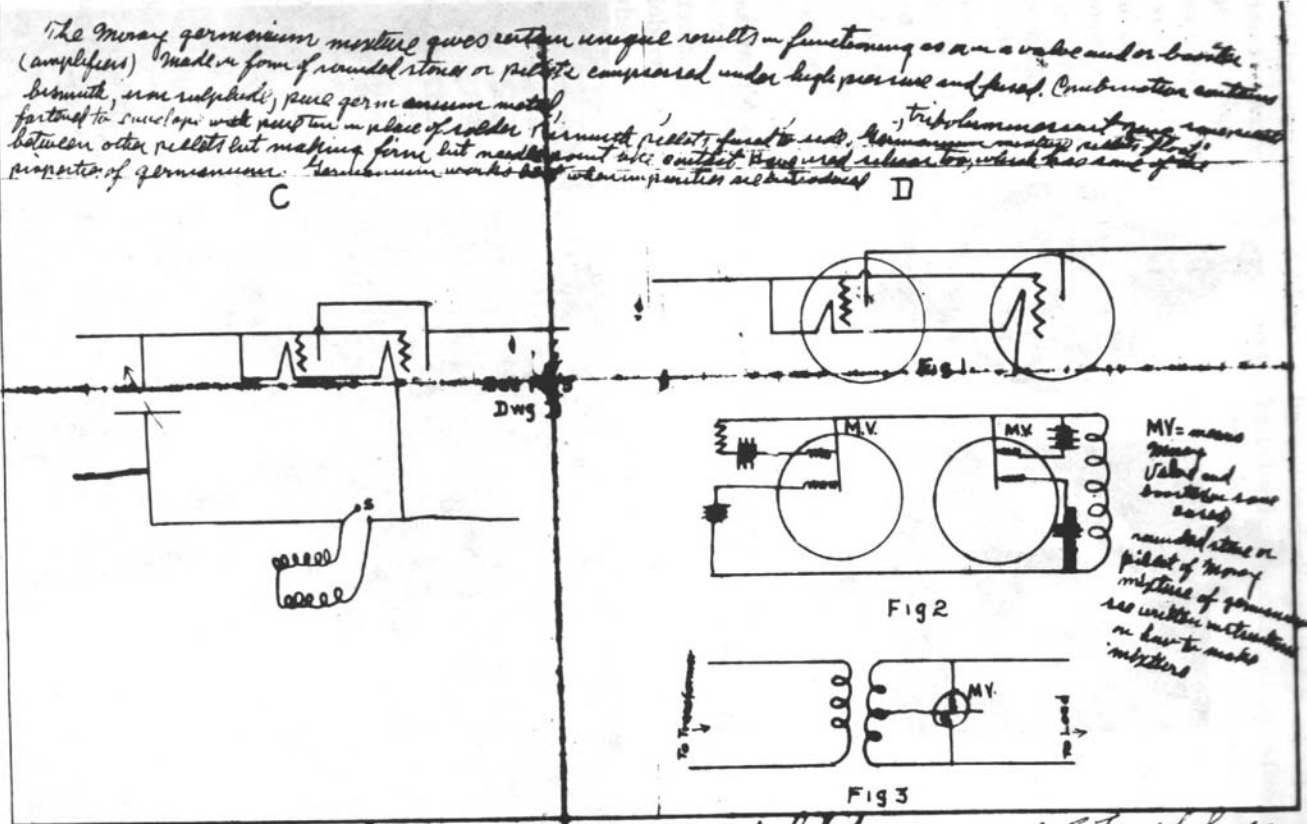 The Moray germanium mixture gives certain unique results in functioning as a valve and or booster
(amplifiers) Made in form of rounded stones or pellets compressed under high pressure and fused. Combination contains
bismuth, iron sulphide, pure germanium metal,
fastened to with pure tin in place of solder Bismuth pellets fused to Germanium mixture pellets float
between other pellets but making firm but needle point like contact used too, which has some of the
properties of germanium. Germanium works best when impurities are introduced
C
D
Dwg
Fig 1
M.V.
M.V.
MV = means
Moray
Valve and
booster in some
cases
rounded stone or
pellet of Moray
mixture of germanium
see written instructions
on how to make
mixtures
S
Fig 2
To Transformer
MV.
To Load
Fig 3